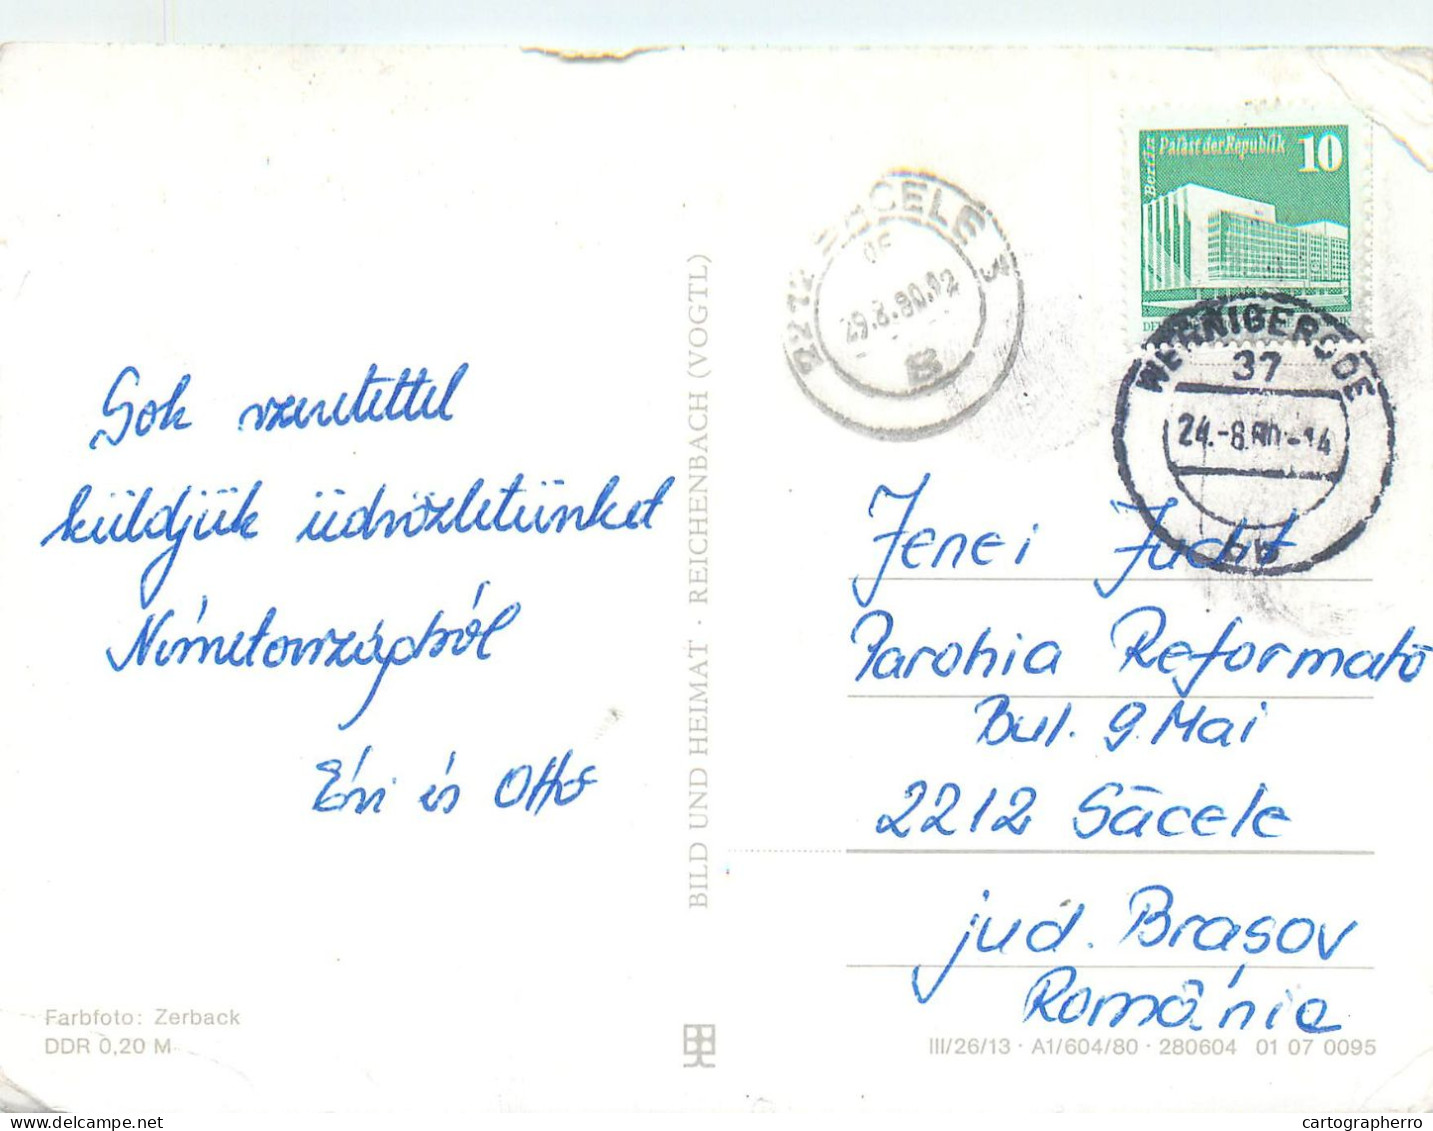 Berlin
Palast der Republik
10
2212 SĂCELE 3
29.8.80.12
B
WERNIGERODE
37
24.-8.80.-14
Sok szeretettel
küldjük üdvözletünket
Németországból
Évi és Otto
BILD UND HEIMAT · REICHENBACH (VOGTL)
Jenei Judit
Parohia Reformată
Bul. 9 Mai
2212 Săcele
jud. Brasov
România
Farbfoto: Zerback
DDR 0,20 M
III/26/13 · A1/604/80 · 280604 01 07 0095
cartographerro